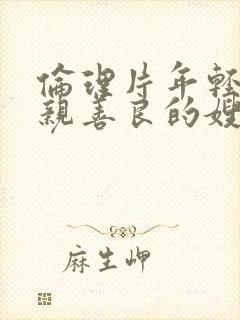 倫理片年輕
親善良的嫂
麻生岬